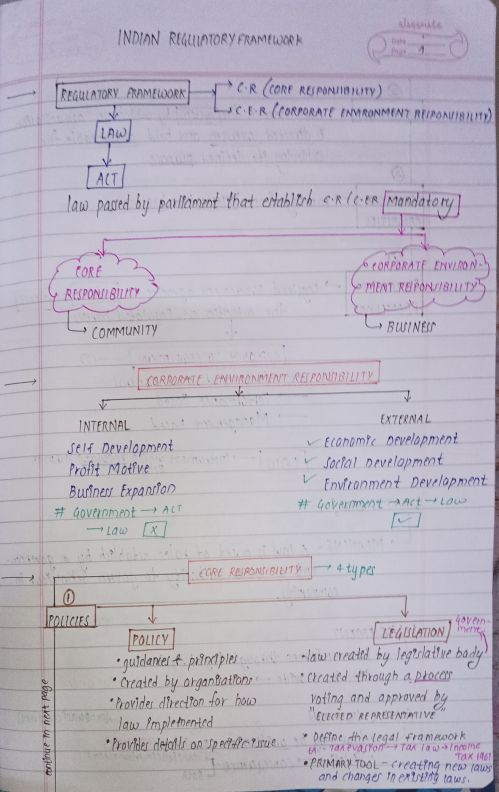 classmate
Date
Page 1
INDIAN REGULATORY FRAMEWORK
REGULATORY FRAMEWORK
C.R (CORE RESPONSIBILITY)
C.E.R (CORPORATE ENVIRONMENT RESPONSIBILITY)
LAW
ACT
law passed by parliament that establish C.R/C.ER Mandatory
CORE
RESPONSIBILITY
CORPORATE ENVIRON-
MENT RESPONSIBILITY
COMMUNITY
BUSINESS
CORPORATE ENVIRONMENT RESPONSIBILITY
INTERNAL
Self Development
Profit Motive
Business Expansion
# Government → ACT
→ Law x
EXTERNAL
✓ Economic Development
✓ Social Development
✓ Environment Development
# Government → Act → Law
✓
CORE RESPONSIBILITY → 4 types
1
POLICIES
POLICY
• guidances & principles
• Created by organisations
• Provides direction for how
law implemented
• Provides details on specific issue
LEGISLATION
Govern-
ment
• law created by legislative body
• Created through a process
voting and approved by
"ELECTED REPRESENTATIVE"
• Define the legal framework
Ex:- Tax evasion → Tax law → Income
Tax 1961
• PRIMARY TOOL - creating new laws
and changes in existing laws.
continue in next page